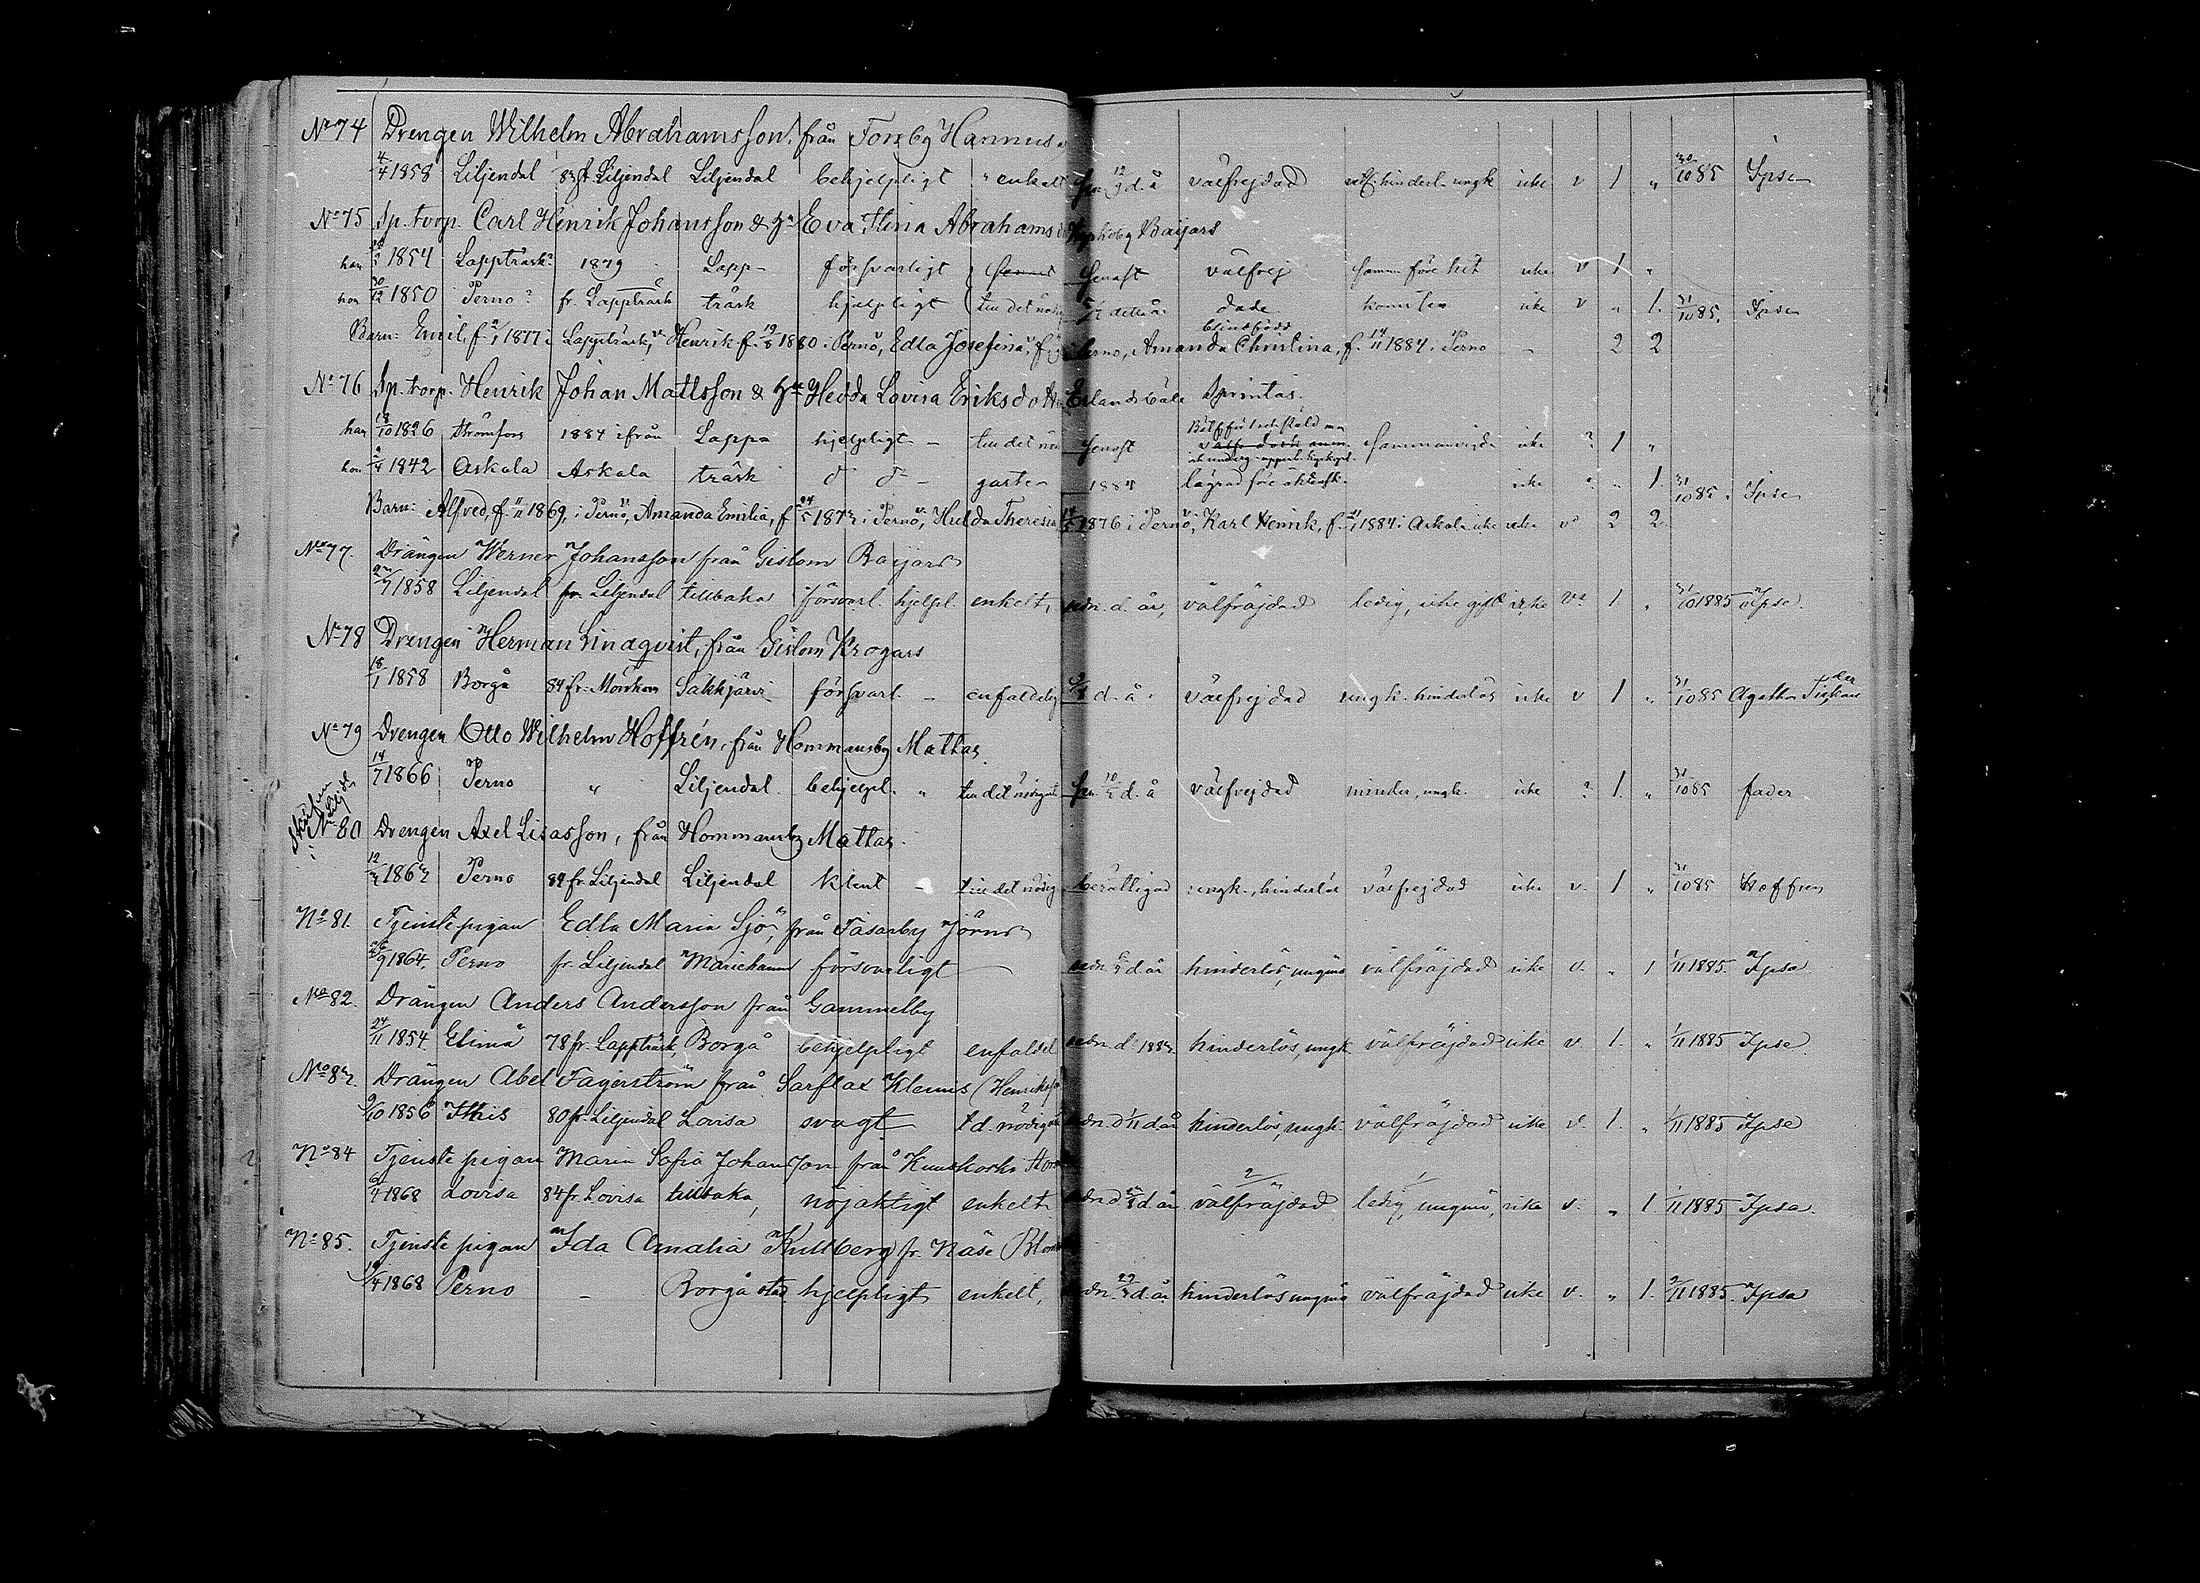 No 74 Drengen Wilhelm Abrahamsson, från Forsby Hannus
4/4 1858 Liljendal 83 fr Liljendal Liljendal behjelpligt " enkelt sen. 12/9 d. å välfrejdad hinderl. ungk icke v 1 " 30/10 85 Ipse
No 75 Sp. torp. Carl Henrik Johansson & Hu Eva Stina Abrahamsd Baijars
han 1854 Lappträsk? 1879 Lapp- försvarligt senast välfrej samm före hit icke v 1 "
hon 30/12 1850 Perno? fr. Lappträsk träsk hjelpligt till det nödig detta år dade komsten icke v " 1. 31/10 85. Ipse
Barn: Emil, f. 1877 i Lappträsk, v Henrik f. 19/8 1880 i Perno, Edla Josefina, f Perno, Amanda Christina, f. 14/11 1884 i Perno - 2 2
No 76 Sp. torp. Henrik Johan Mattsson & Hu Hedda Lovisa Eriksdotter Erlandsböle Sprintas.
han 13/10 1826 Strömfors 1884 ifrån Lapp- hjelpligt - till det nöd senast sammanvigde icke ? 1 "
hon 1842 Askola Askola träsk d d - gaste 1884 lägrad före äktensk. icke " 1. 31/10 85. Ipse
Barn: Alfred, f. 1869, i Perno, Amanda Emilia, f 24/5 1873 i Perno, Hulda Theresia 1876 i Perno, Karl Henrik, f. 1884 i Askola icke icke v 2 2
No 77. Drängen Werner Johansson från Gislom Baijars
1858 Liljendal fr. Liljendal tillbaka försvarl. hjelpl. enkelt, sedn. d. år, välfräjdad ledig, icke gift icke v. 1 " 31/10 1885 Ipse.
No 78 Drengen Herman Lindqvist, från Gislom Krogars
18/1 1858 Borgå 84 fr. Mörskom Säkkjärvi försvarl. - enfaldelig d. å. välfrejdad ungk. hinderlös icke v 1 " 31/10 85 Agatha
No 79 Drengen Otto Wilhelm Hoffrén, från Hommansby Mattas
14/7 1866 Perno " Liljendal behjelpl. " till det nödigaste sen. d. å välfrejdad minder, ungk. icke ? 1. " 31/10 85 fader
No 80 Drengen Axel Lisasson, från Hommansby Mattas.
1867 Perno 84 fr. Liljendal Liljendal klent - till det nödig berättigad ungk., hinderlös välfrejdad icke v. 1 " 31/10 85 Hoffren
No 81. Tjenstepigan Edla Maria Sjö, från Tasarby Jörns
26/9 1864. Perno fr. Liljendal Mariehamn försvarligt sedn. d år hinderlös, ungmö välfräjdad icke v. " 1 1/11 1885. Ipsa
No 82. Drängen Anders Andersson från Gammelby
24/11 1854 Elimä 78 fr. Lappträsk, Borgå behjelpligt enfaldel sedn. d. 1883 hinderlös, ungk. välfräjdad icke v. 1. " 1/11 1885 Ipse.
No 83. Drängen Abel Fagerström från Sarflax Klemis (Henriks
9/10 1856 Ithis 80 fr. Liljendal Lovisa svagt t d. nödigas sedn. d. 1/11 d år hinderlös, ungk. välfräjdad icke v. 1. " 1/11 1885 Ipse
No 84 Tjenste pigan Maria Sofia Johansson från Kuuskoski
6/4 1868 Lovisa 84 fr. Lovisa tillbaka, nöjaktigt enkelt sedn. d. år välfräjdad ledig, ungmö, icke v. " 1. 1/11 1885 Ipsa.
No 85. Tjenste pigan Ida Amalia Kullberg fr. Näse
1868 Perno - Borgå stad hjelpligt enkelt, sedn. 27/9 d. år. hinderlös, ungmö välfräjdad icke v. " 1. 2/11 1885. Ipsa